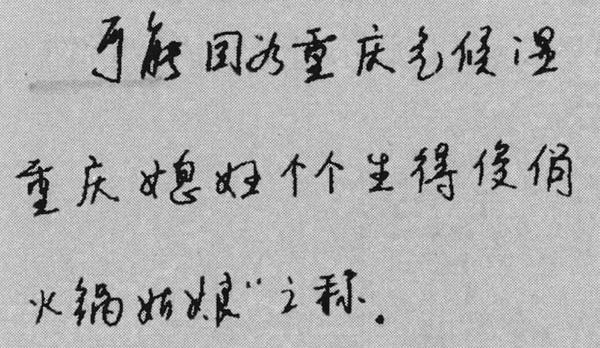 可能因为重庆气候湿
重庆媳妇个个生得俊俏
火锅姑娘"之称.